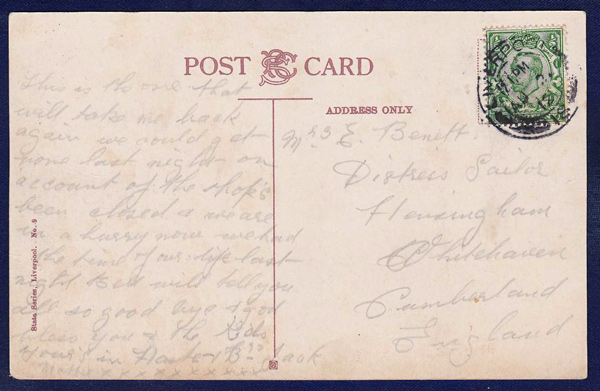 POST CARD
ADDRESS ONLY
This is the one that
will take me back
again we could get
none last night on
account of the shop's
been closed & we are
in a hurry now we had
the time of our life last
night will tell you
all so good bye & god
bless you & the kids
yours in Jack
xxxxxxxxxx
Mrs E. Benett
Distress Sailor
Hensingham
Whitehaven
Cumberland
England
State Series, Liverpool. No. 9
LIVERPOOL
PM
12